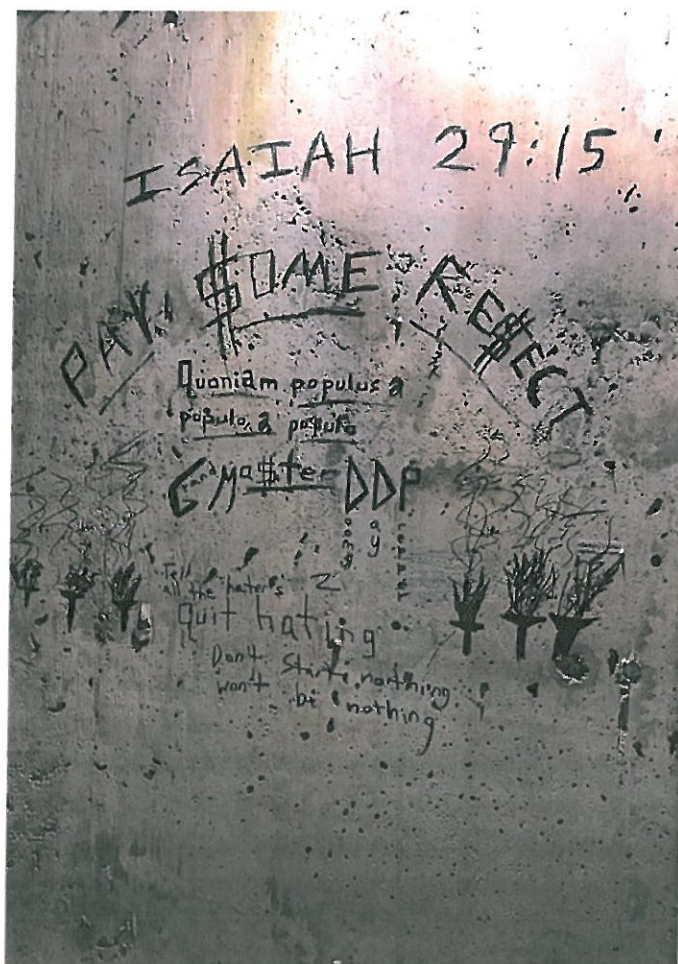 ISAIAH 29:15
PAY $OME RE$PECT
Quoniam populus a
populo a populo
Grand Ma$ter DDP
Tell
all the hater's 2
quit hating
Don't Start northing
won't be nothing